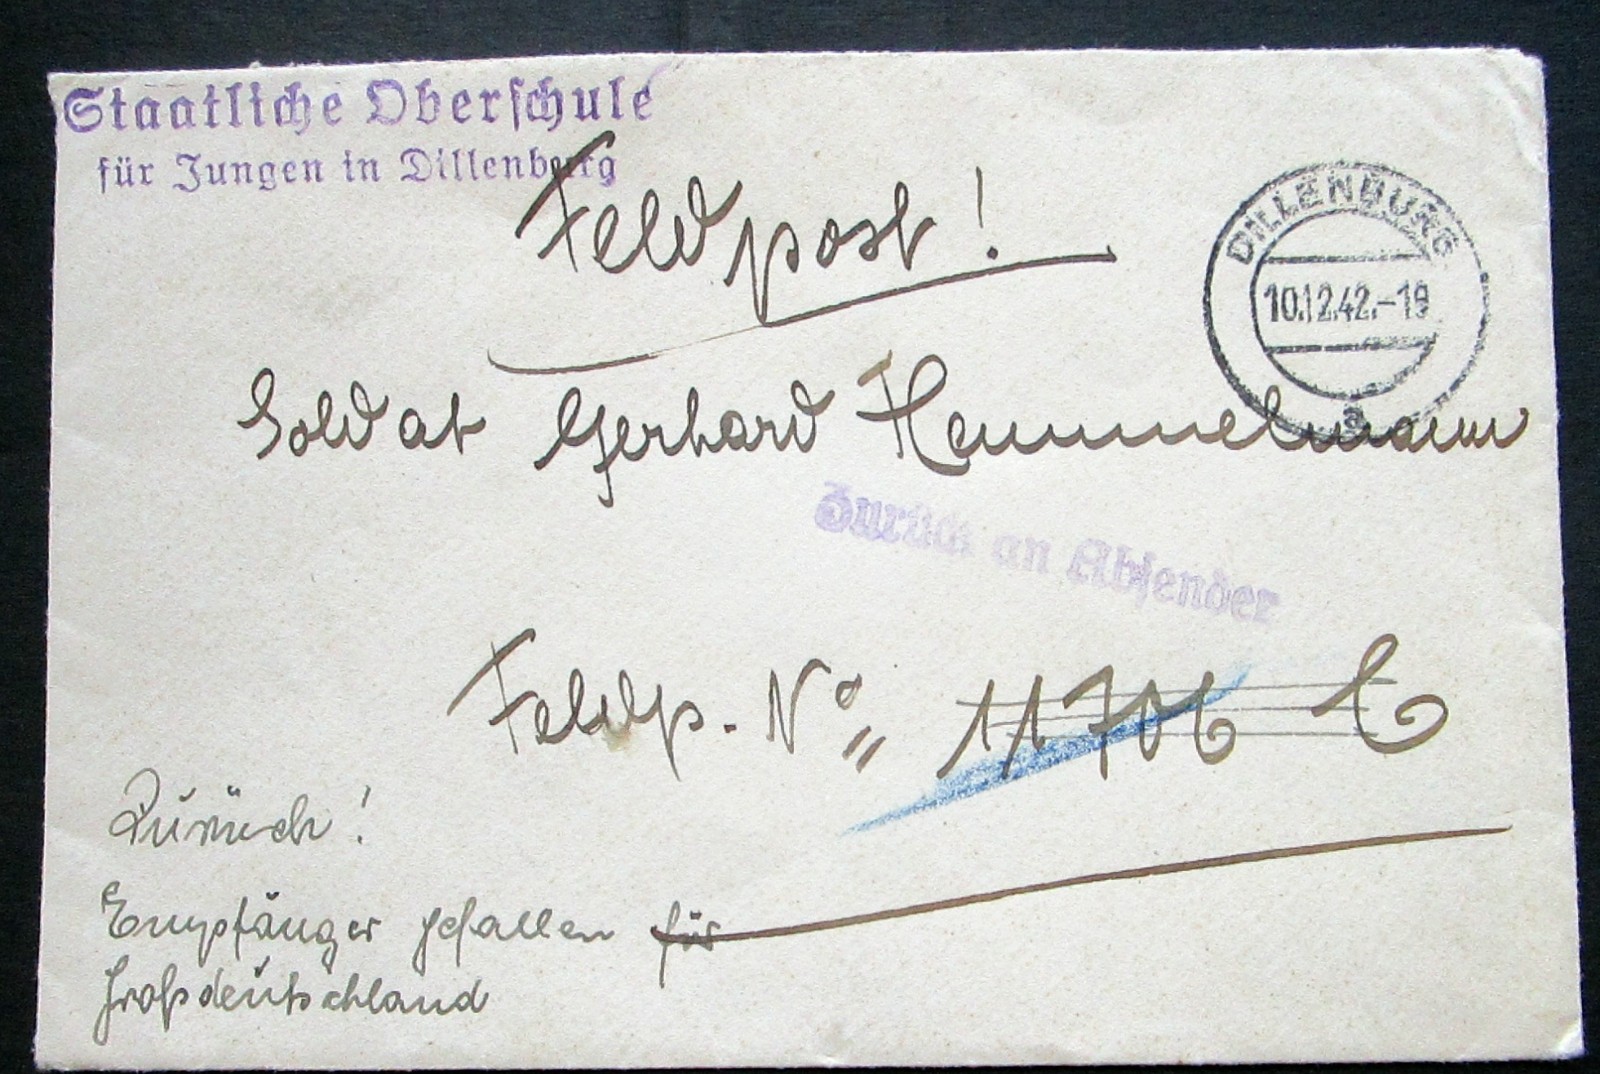 Staatliche Oberschule
für Jungen in Dillenburg
Feldpost!
DILLENBURG
10.12.42.-19
a
Soldat Gerhard Hemmelmann
Zurück an Absender
Feldp. No 11706 C
Zurück!
Empfänger gefallen für
Großdeutschland